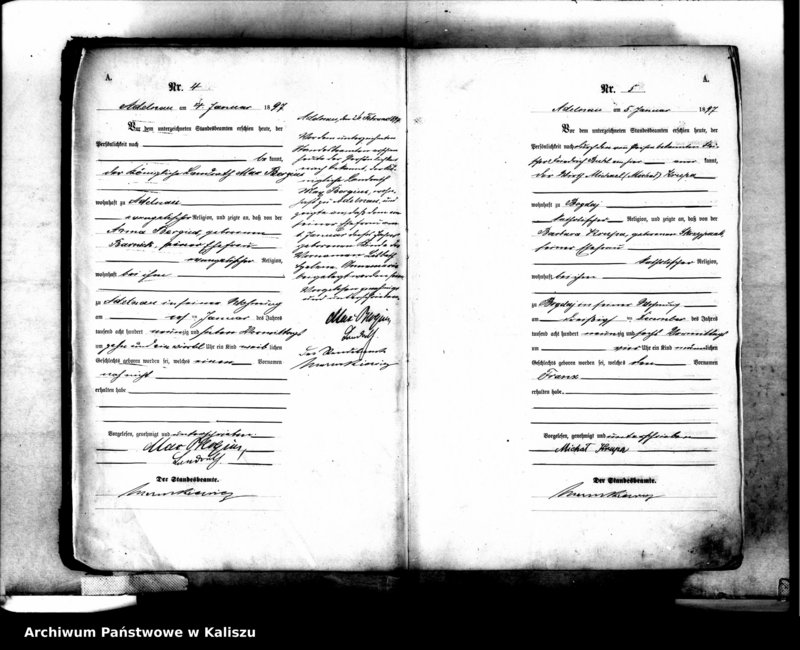 A.
Nr. 4
Adelnau am 4. Januar 1897
Vor dem unterzeichneten Standesbeamten erschien heute, der
Persönlichkeit nach
bekannt,
der Königliche Landrath Max Bergius
wohnhaft zu Adelnau
evangelischer Religion, und zeigte an, daß von der
Anna Bergius, geborenen
seiner Ehefrau
evangelischer Religion,
wohnhaft bei ihm
zu Adelnau in seiner Wohnung
am Januar des Jahres
tausend acht hundert neunzig und sieben Vormittags
um zehn und ein viertel Uhr ein Kind weiblichen
Geschlechts geboren worden sei, welches einen Vornamen
noch nicht
erhalten habe
Vorgelesen, genehmigt und unterschrieben
Max Bergius,
Landrath.
Der Standesbeamte.
Adelnau, den Februar
Vor dem unterzeichneten
Standesbeamten erschien
heute, der Persönlichkeit
nach bekannt, der Kö-
nigliche Landrath
Max Bergius, wohn-
haft zu Adelnau, und
zeigte an, daß dem von
seiner Ehefrau am
Januar dieses Jahres
geborenen Kinde die
Vornamen
beigelegt worden seien
Vorgelesen, genehmigt
und unterschrieben
Max Bergius,
Landrath
Der Standesbeamte
A.
Nr. 5
Adelnau am 5. Januar 1897
Vor dem unterzeichneten Standesbeamten erschien heute, der
Persönlichkeit nach
kannt,
der Wirth Michael (Michał) Krupa
wohnhaft zu Bogdaj
katholischer Religion, und zeigte an, daß von der
Barbara Krupa, geborenen
seiner Ehefrau
katholischer Religion,
wohnhaft bei ihm
zu Bogdaj in seiner Wohnung
am Dezember des Jahres
tausend acht hundert neunzig und sechs Vormittags
um vier Uhr ein Kind männlichen
Geschlechts geboren worden sei, welches den Vornamen
Franz
erhalten habe.
Vorgelesen, genehmigt und unterschrieben
Michał Krupa
Der Standesbeamte.
Archiwum Państwowe w Kaliszu